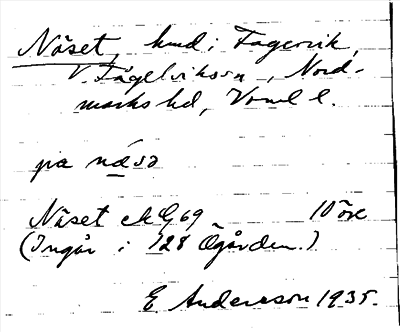 Näset, hmd i Fagervik,
V. Fågelviks sn, Nord-
marks hd, Vrml l.
på näsə
Näset äG 69 10 öre
(Ingår i 128 Ögården.)
E Andersson 1935.